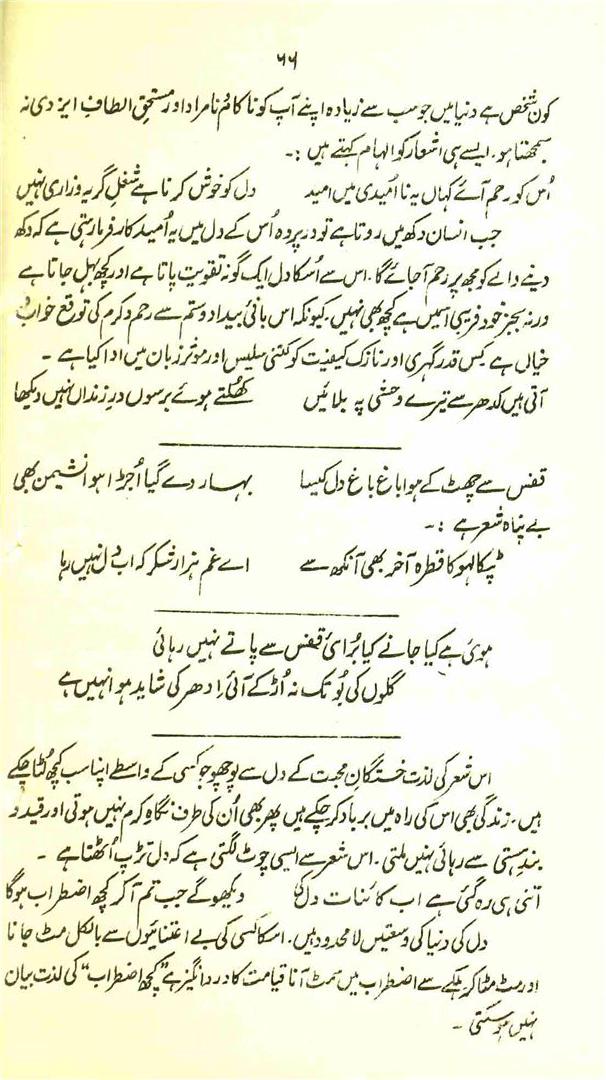 ۶۶
کون شخص ہے دنیا میں جو سب سے زیادہ اپنے آپ کو ناکام نامراد اور مستحق الطافِ ایزدی نہ
سمجھتا ہو. ایسے ہی اشعار کو الہام کہتے ہیں :۔
اُس کو رحم آئے کہاں یہ نا اُمیدی میں امید دل کو خوش کرنا ہے شغلِ گریہ وزاری نہیں
جب انسان دکھ میں روتا ہے تو در پردہ اُس کے دل میں یہ اُمید کار فرما رہتی ہے کہ دکھ
دینے والے کو مجھ پر رحم آجائے گا. اس سے اُسکا دل ایک گونہ تقویت پاتا ہے اور کچھ بہل جاتا ہے
ورنہ بجز خود فریبی اسمیں ہے کچھ بھی نہیں. کیونکہ اس بانئ بیداد وستم سے رحم وکرم کی توقع خواب و
خیال ہے. کس قدر گہری اور نازک کیفیت کو کتنی سلیس اور موثر زبان میں ادا کیا ہے ۔
آتی ہیں کدھر سے تیرے وحشی پہ بلائیں کھلتے ہوئے برسوں درِ زنداں نہیں دیکھا
قفس سے چھٹ کے ہوا باغ باغ دل کیسا بہار دے گیا اُجڑا ہوا نشیمن بھی
بے پناہ شعر ہے :۔
ٹپکا لہو کا قطرہ آخر بھی آنکھ سے اے غم ہزار شکر کہ اب دل نہیں رہا
ہوئی ہے کیا جانے کیا بُرائی قفس سے پاتے نہیں رہائی
گلوں کی بُو تک نہ اُڑ کے آئی اِدھر کی شاید ہوا نہیں ہے
اس شعر کی لذت خستگانِ محبت کے دل سے پوچھو جو کسی کے واسطے اپنا سب کچھ لُٹا چکے
ہیں. زندگی بھی اس کی راہ میں برباد کر چکے ہیں پھر بھی اُن کی طرف نگاہِ کرم نہیں ہوتی اور قید و
بندِ ہستی سے رہائی نہیں ملتی. اس شعر سے ایسی چوٹ لگتی ہے کہ دل تڑپ اُٹھتا ہے ۔
آتنی ہی رہ گئی ہے اب کائنات دل کی دیکھو گے جب تم آکر کچھ اضطراب ہوگا
دل کی دنیا کی وسعتیں لا محدود ہیں. اسکا کسی کی بے اعتنائیوں سے بالکل مٹ جانا
اور مٹ مٹا کر ہلکے سے اضطراب میں سمٹ آنا قیامت کا درد انگیز ہے "کچھ اضطراب" کی لذت بیان
نہیں ہو سکتی ۔